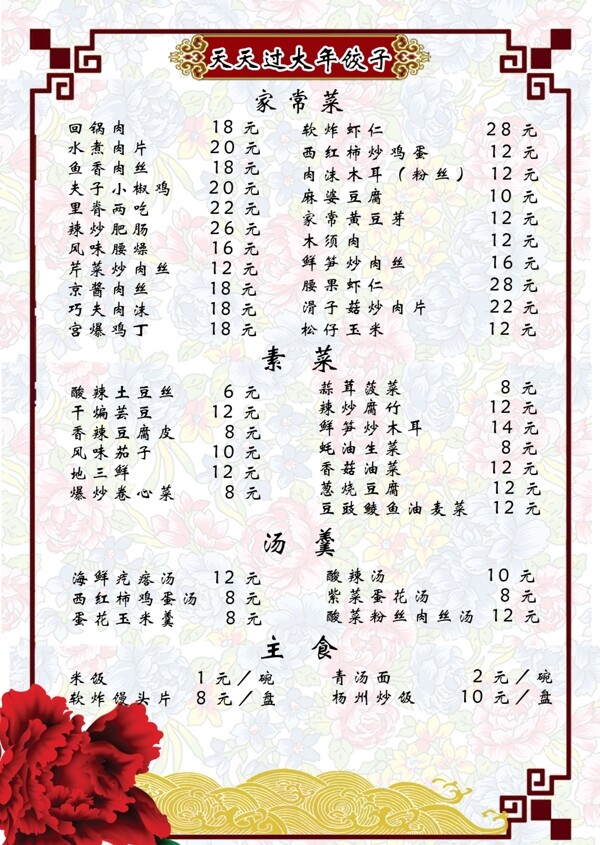 天天过大年饺子
家常菜
回锅肉 18元
水煮肉片 20元
鱼香肉丝 18元
夫子小椒鸡 20元
里脊两吃 22元
辣炒肥肠 26元
风味腰燥 16元
芹菜炒肉丝 12元
京酱肉丝 18元
巧夫肉沫 18元
宫爆鸡丁 18元
软炸虾仁 28元
西红柿炒鸡蛋 12元
肉沫木耳（粉丝） 12元
麻婆豆腐 10元
家常黄豆芽 12元
木须肉 12元
鲜笋炒肉丝 16元
腰果虾仁 28元
滑子菇炒肉片 22元
松仔玉米 12元
素菜
酸辣土豆丝 6元
干煸芸豆 12元
香辣豆腐皮 8元
风味茄子 10元
地三鲜 12元
爆炒卷心菜 8元
蒜茸菠菜 8元
辣炒腐竹 12元
鲜笋炒木耳 14元
蚝油生菜 8元
香菇油菜 12元
葱烧豆腐 12元
豆豉鲮鱼油麦菜 12元
汤羹
海鲜疙瘩汤 12元
西红柿鸡蛋汤 8元
蛋花玉米羹 8元
酸辣汤 10元
紫菜蛋花汤 8元
酸菜粉丝肉丝汤 12元
主食
米饭 1元／碗
软炸馒头片 8元／盘
青汤面 2元／碗
杨州炒饭 10元／盘